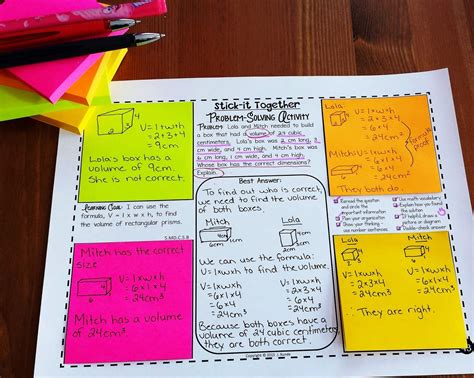 Stick-it Together
Problem-Solving Activity
Problem: Lola and Mitch needed to build
a box that had a volume of 24 cubic
centimeters. Lola's box was 2 cm long, 3
cm wide, and 4 cm high. Mitch's box was
6 cm long, 1 cm wide, and 4 cm high.
Whose box has the correct dimensions?
Explain.
V=lwh
=2+3+4
=9cm
Lola's box has a
volume of 9cm.
She is not correct.
Learning Goal: I can use the
formula, V = l x w x h, to find
the volume of rectangular prisms.
5.MD.C.5.B
Mitch has the correct
size
6
4
V=lxwxh
=6x1x4
=24cm³
Mitch has a volume
of 24cm³
Best Answer:
To find out who is correct,
we need to find the volume
of both boxes.
Mitch
Lola
4cm
6cm
4cm
We can use the formula:
V=lxwxh to find the volume.
V=lxwxh
=6x1x4
=6x4
=24cm³
V=lxwxh
=2x3x4
=6x4
=24cm³
Because both boxes have a
volume of 24 cubic centimeters
they are both correct.
Lola
V=lxwxh
=2x3x4
=6x4
=24cm³
Mitch:
V=lxwxh
=6x1x4
=6x4
=24cm³
formula
They both do.
Reread the question
and circle the
important information
Plan your organization
Show your thinking
via number sentences
Use math vocabulary
Explain how you found
the solution
If helpful, draw a
picture or diagram
Double-check answer
Lola
Mitch
V=lxwxh
=2x3x4
=6x4
=24cm³
V=lxwxh
=6x1x4
=6x4
=24cm³
∴ They are right.